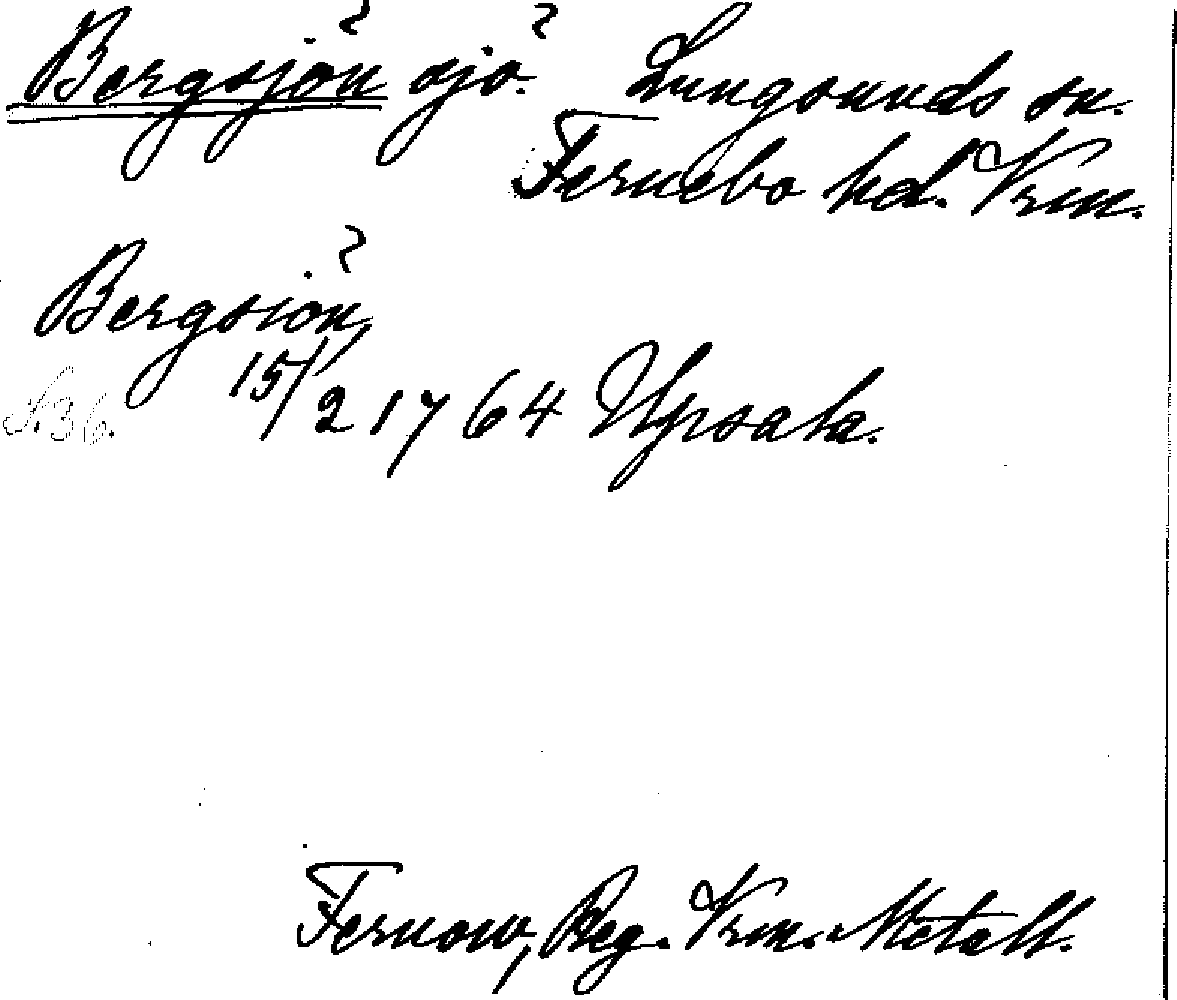 Bergsjön sjö. Lungsunds sn.
Fernebo hd. Vrm.
Bergsiön,
15/2 1764 Upsala.
S. 36.
Fernow, Reg. Vrm. Metall.